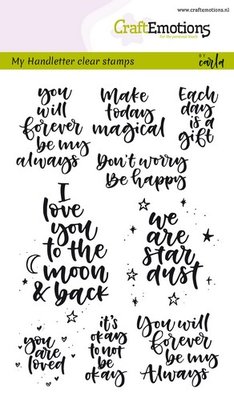 www.craftemotions.nl
CraftEmotions
Get the personal touch!
My Handletter clear stamps
BY
carla
you
will
forever
be my
always
Make
today
magical
Each
day
is a
gift
Don't worry
Be happy
I
love
you
to the
moon
& back
we
are
star
dust
you
are
loved
it's
okay
to not
be
okay
You will
forever
be my
Always